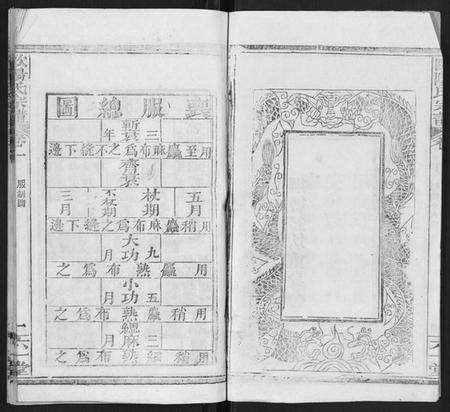 歐陽氏宗譜 卷
喪服總圖
斬衰 三年
用至麤麻布為之不縫下邊
齊衰
五月 杖期 不杖期 三月
用稍麤麻布為之縫下邊
大功 九月
用麤熟布為之
小功 五月
用稍麤熟布為之
緦麻 三月
用稍細熟布為之
歐陽氏宗譜 卷一 服制圖 六一堂